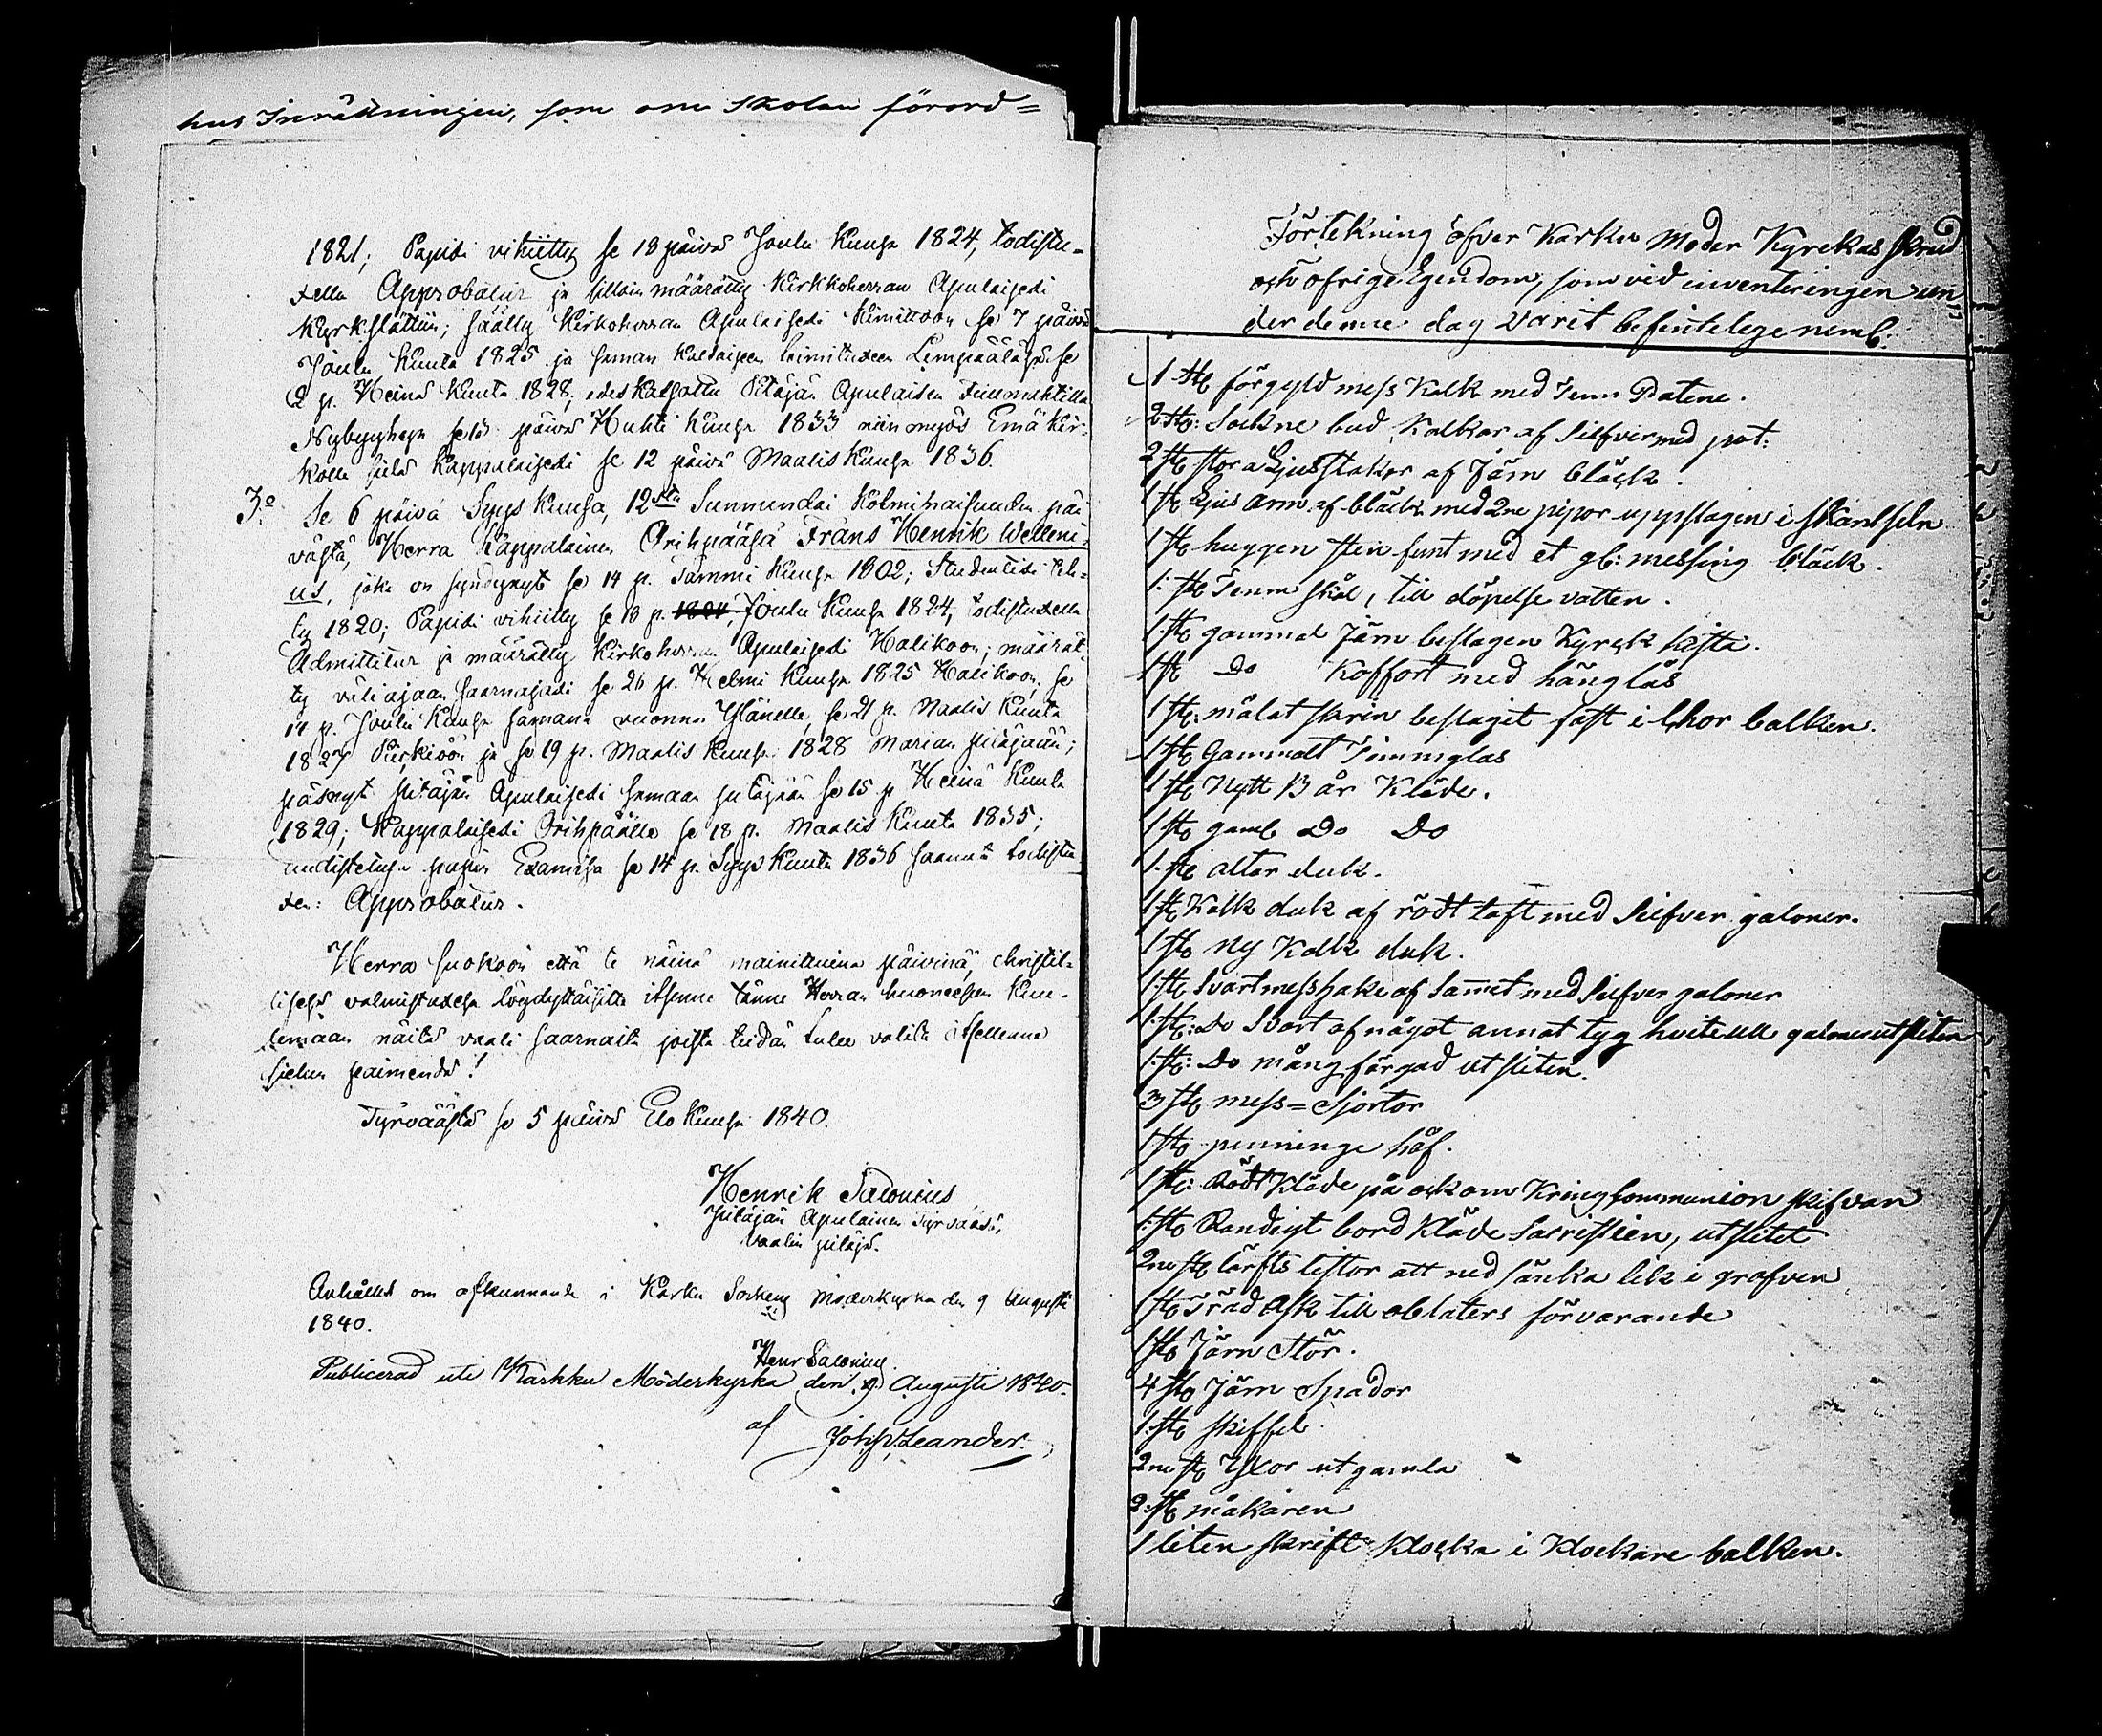 hus Inrättningen, som om Skolan förord=
1821; Papiksi vihitty se 18 päivä Joulu Kuusa 1824, todistu-
xella Approbatur ja silloin määrätty Kirkkoherran Apulaiseksi
Kyrkslättiin; säätty Kirkoherran Apulaiseksi Kimittoon se 7 päivä
Joulu Kuuta 1825 ja saman kaltaiseen toimituxeen Lempäälään se
2 p. Heinä Kuuta 1828; edeskatsottu Pitäjän Apulaisen
Nybyyhyn se päivä Huhti Kuusa 1833 niin myös Emäkir-
kolle sielä Kappalaiseksi se 12 päivä Maalis Kuusa 1836.
3:o Se 6 päivä Syys Kuusa, 12sta Sunnundai Kolminaisuuden päi
västä, Herra Kappalainen Orihpääsä Frans Henrik Welleni-
us, joka on syndynyt se 14 p. Tammi Kuusa 1802; Studentiksi tul-
ty 1820; Papiksi vihitty se 18 p. 1824, Joulu Kuusa 1824, todistuxella
Admittitur ja määrätty Kirkoherran Apulaiseksi Halikoon; määrät-
ty väliajaan saarnajaksi se 26 p. Helmi Kuusa 1825 Halikoon, se
14 p. Joulu Kuusa samana vuonna Yläneelle, se 21 p. Maalis Kuuta
1827 Pürkiöön ja se 19 p. Maalis Kuusa 1828 Marian pitäjään;
päsnyt pitäjän Apulaiseksi samaan pitäjään se 15 p Heinä Kuuta
1829; Kappalaiseksi Orihpäälle se 18 p. Maalis Kuuta 1835;
uudistetusa papin Examisa se 14 p. Syys Kuuta 1836 saanut todistu
xen: Approbatur.
Herra suokoon että te näinä mainittuina päivinä, christil-
lisesä valmistuxesa löydyttäisitte itsenne tänne Herran huoneesen kuu-
lemaan näitä vaali saarnaita joista teidän tulee valita itsellenne
sielun paimenda!
Tyrväästä se 5 päivä Elo Kuusa 1840.
Henrik Salonius
Pitäjän Apulainen Tyrvääsä,
vaalin pitäjä.
Anhålles om afkunnande i Karku Sockens Moderkyrka den 9 Augusti
1840.
Henr Salonius.
Publicerad uti Karkku Möderkyrka den 9 Augusti 1840.
af Joh. Leander.
Förtekning öfver Karku Moder Kyrckas skrud
och öfrige Egendom, som vid inventeringen un-
der denne dag varit befintelige neml:
1 st förgyld mess Kalk med Tenn Patene.
2 st: Sockne bud Kalkar af Silfver med pat:
2 st stora Ljusstakar af Järn bläck.
1 st Ljus arm af bläck med 2ne pipor uppslagen i Skantseln
1 st huggen sten funt med et gl: messing bläck.
1: st Tenn skål, till döpelse vatten.
1: st gammal Järn beslagen Kyrck kista.
1 st Do Koffort med hänglås
1 st: målat skrin beslagit fast i Chor balken.
1 st Gammalt Timmglas
1 st Nytt Bår Kläde.
1 st gaml Do Do
1. st altar duk.
1 st Kalk duk af rödt taft med Silfver galoner.
1 st ny Kalk duk.
1: st Svart messhake af Sammet med Silfver galoner
1: st: Do Svart af något annat tyg hvite ull galoner utsliten
1: st: Do mång färgad utsliten.
3 st mess=Sjortor
1 st penninge håf.
1 st: Rödt Kläde på och om Kring Communion skifvan
1: st Randigt bord Kläde Sacristien, utslitet
2ne st lärfts listor att ned sänka lik i grafven
1 st Träd Ask till oblaters förvarande
1 st Järn Stör.
4 st Järn Spador
1: st skiffel.
2ne st Yxor ut gamla
2: st
1 liten skrift Klocka i Klockare balken.